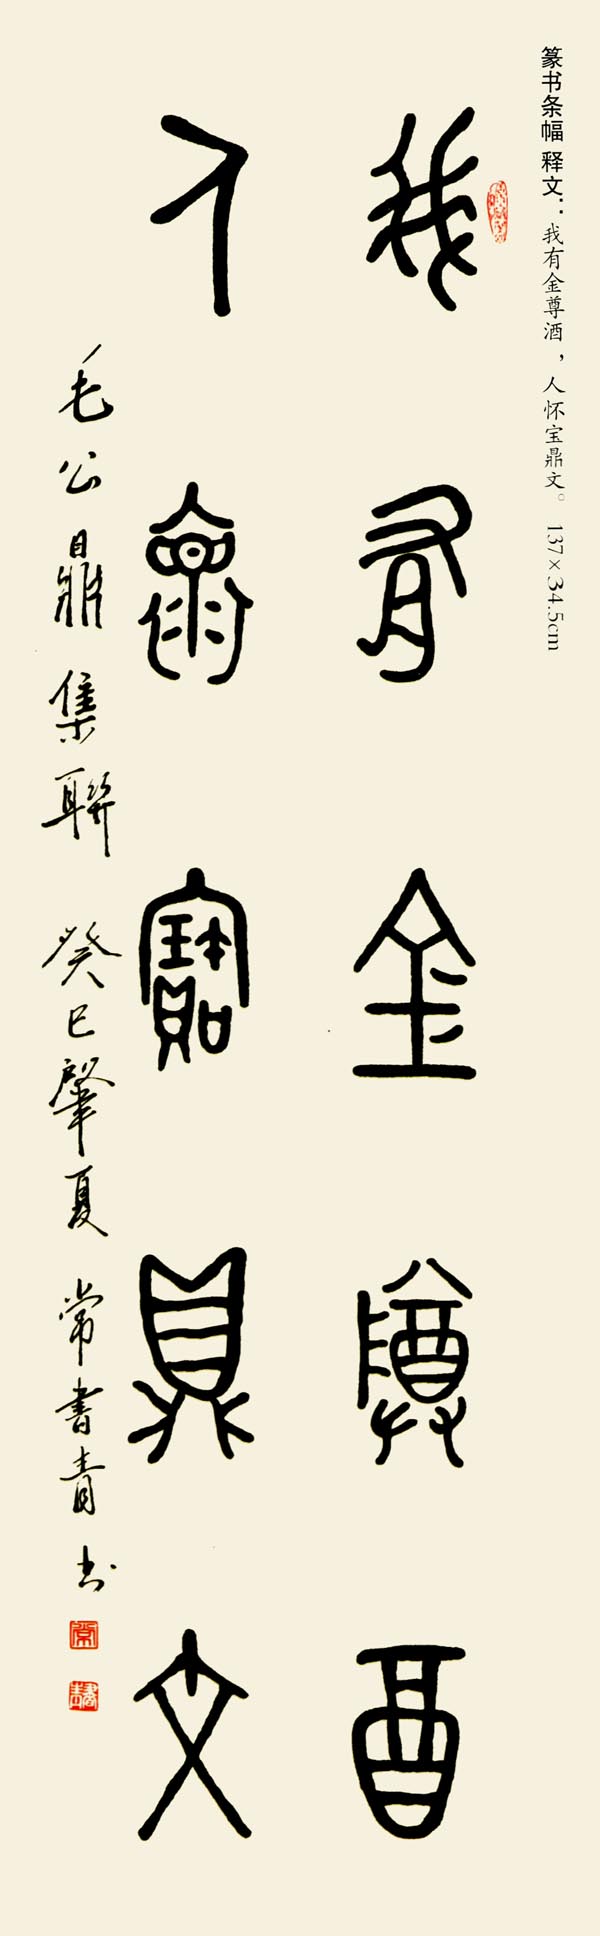 篆书条幅 释文：我有金尊酒，人怀宝鼎文。 137×34.5cm
我有金尊酉
人褱寶鼎文
毛公鼎集聯 癸巳肇夏 常書青书